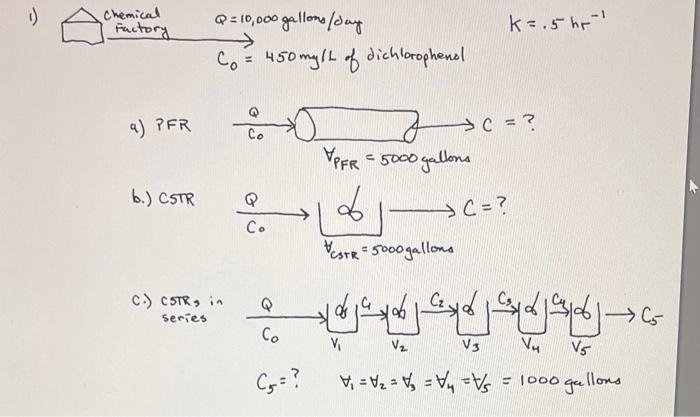 1) Chemical Factory Q = 10,000 gallons/day K = .5 hr⁻¹
C₀ = 450 mg/L of dichlorophenol
a) PFR Q C₀ C = ?
∀PFR = 5000 gallons
b.) CSTR Q C₀ C = ?
∀CSTR = 5000 gallons
C.) CSTRs in series Q C₀ C₁ C₂ C₃ C₄ C₅
V₁ V₂ V₃ V₄ V₅
C₅ = ? ∀₁ = ∀₂ = ∀₃ = ∀₄ = ∀₅ = 1000 gallons